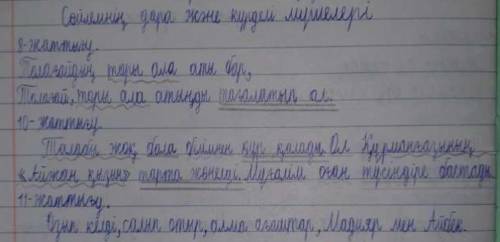 Сөйлемнің дара және күрделі мүшелері
8-жаттығу.
Толағайдың торы ала аты бар,
Толағай, торы ала атыңды тағалатып ал.
10-жаттығу.
Талабы жоқ бала білімнен құр қалады. Ол Құрманғазының
«Айжан қызын» тарта жөнелді. Мұғалім оған түсіндіре бастады
11-жаттығу.
Озып келді, салып отыр, алма ағаштар, Мадияр мен Айбек.